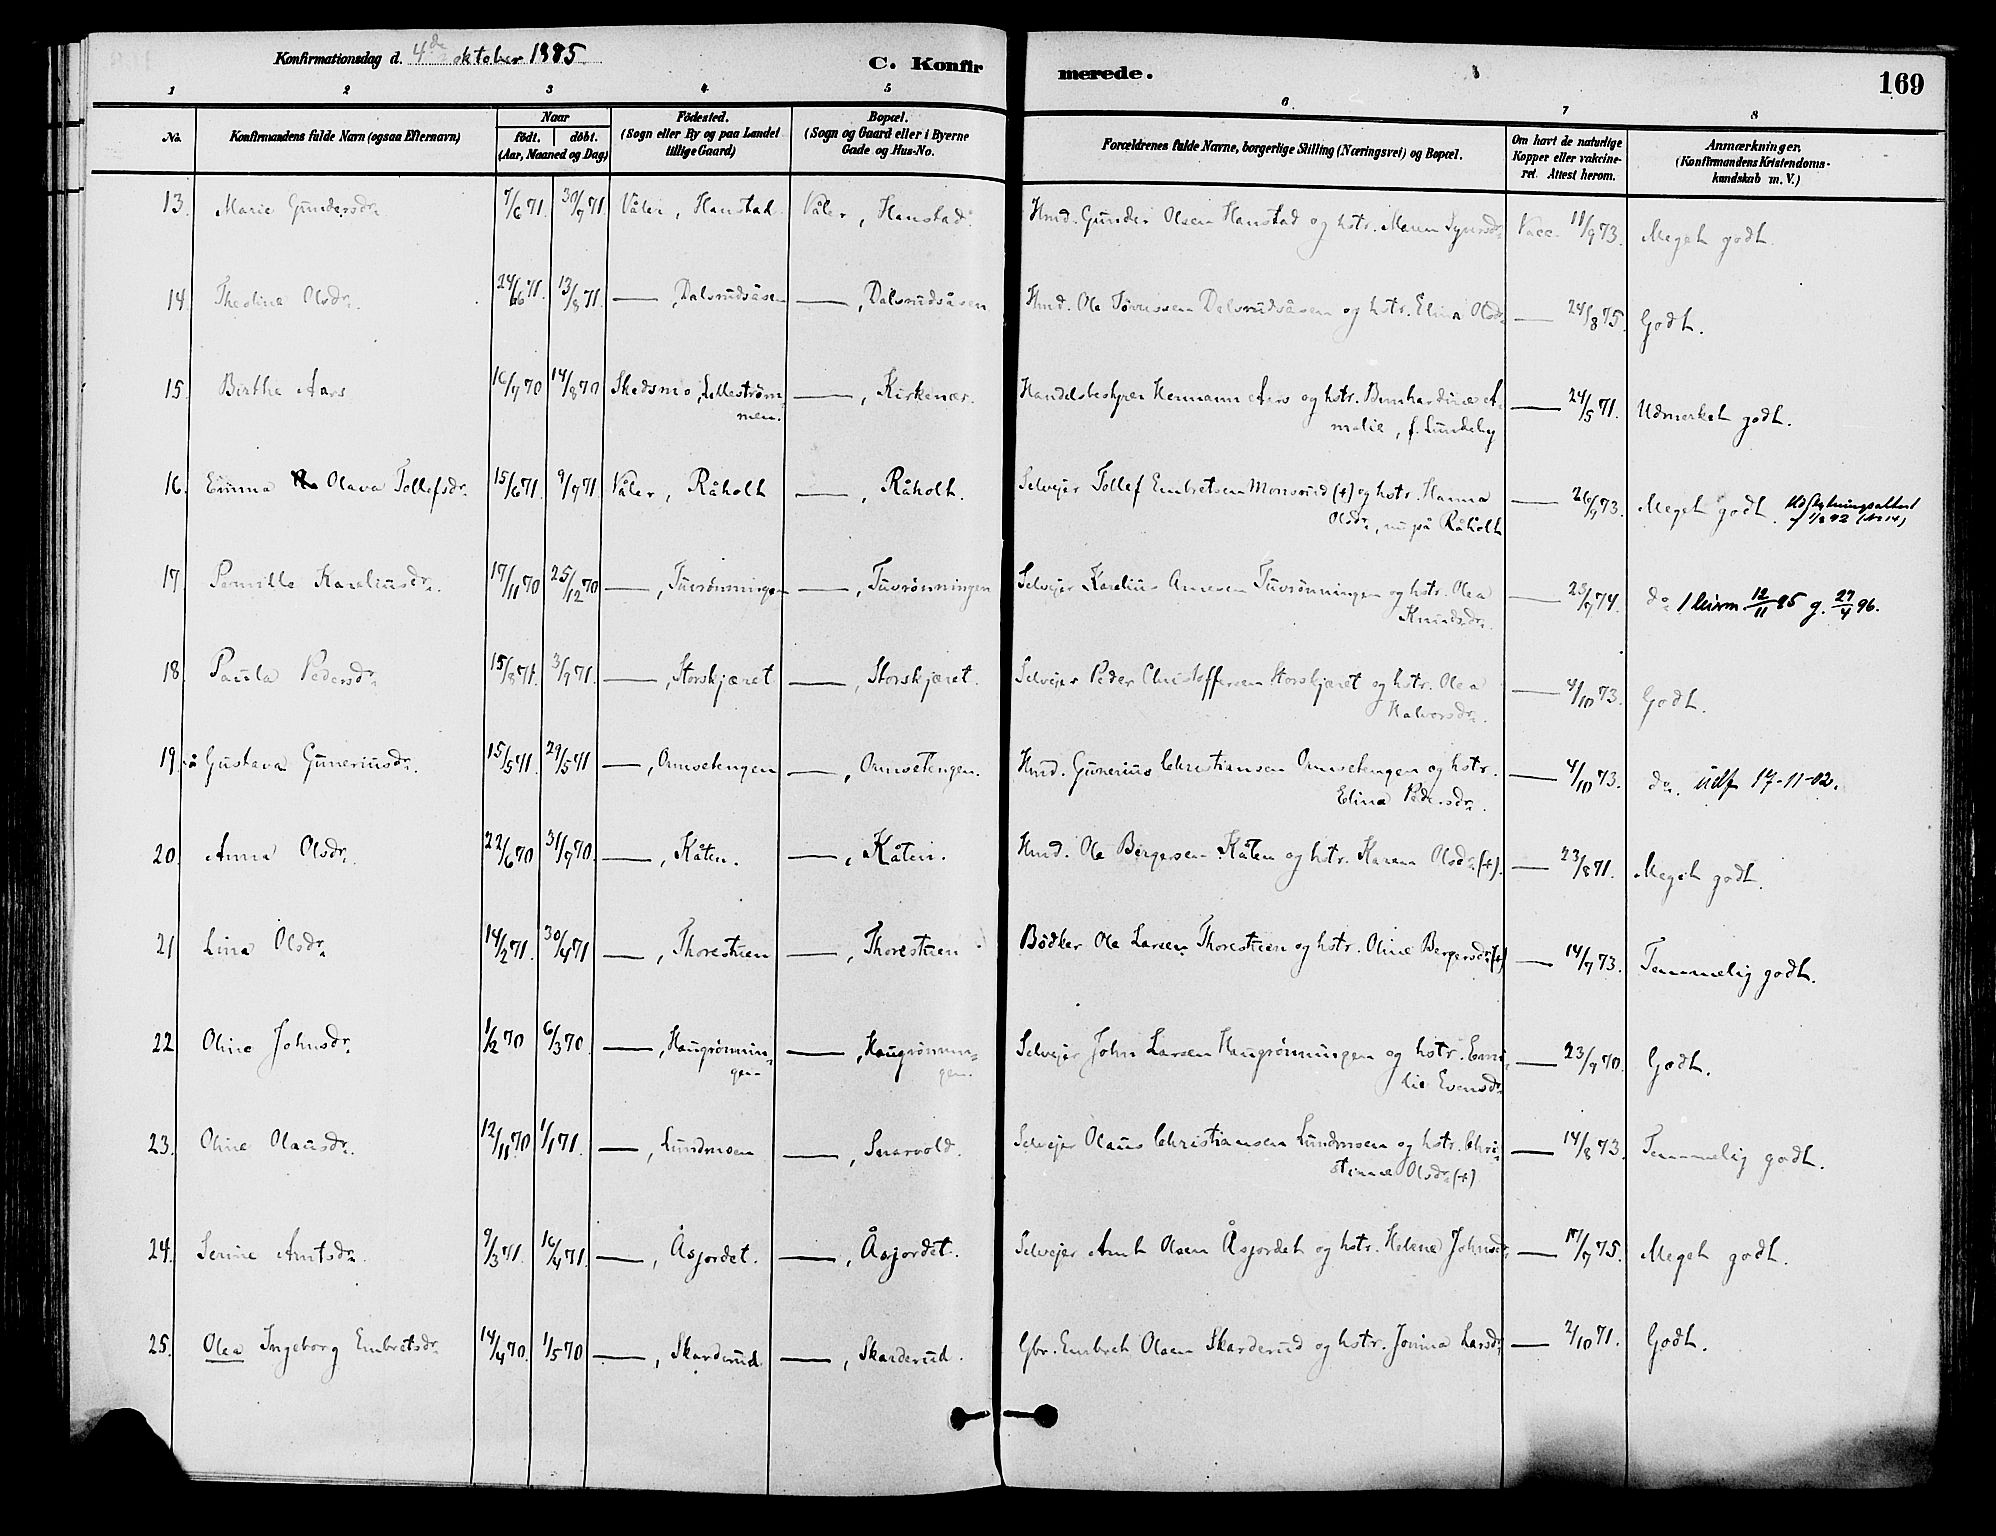 Konfirmationsdag d. 4de oktober 1885.
C. Konfir merede.
169
1 2 3 4 5 6 7 8
No.
Konfirmandens fulde Navn (ogsaa Efternavn)
Naar
födt. döbt.
(Aar, Maaned og Dag)
Födested.
(Sogn eller By og paa Landet
tillige Gaard)
Bopæl.
(Sogn og Gaard eller i Byerne
Gade og Hus-No.
Forældrenes fulde Navne, borgerlige Stilling (Næringsvei) og Bopæl.
Om havt de naturlige
Kopper eller vakcine-
ret. Attest herom.
Anmærkninger.
(Konfirmandens Kristendoms-
kundskab m. V.)
13. Marie Gundersdr. 7/6 71. 30/7 71. Våler, Hanstad. Våler, Hanstad. Hmd. Gunder Olsen Hanstad og hstr. Maren Syversdr. Vacc. 11/9 73. Meget godt.
14. Theoline Olsdr. 24/6 71. 13/8 71. —, Dalsrudsåsen —, Dalsrudsåsen Hmd. Ole Dalsrudsåsen og hstr. Elina Olsdr. — 24/8 75. Godt.
15. Birthe Aars 16/7 70 14/8 70 Skedsmo, Lilleström-
men. —, Kirkenær. Handelsbestyrer Hermann Aars og hstr. Bernhardine A-
malie, f. Lundeby — 24/5 71. Udmerket godt.
16. Emma Olava Tollefsdr. 15/6 71. 9/7 71. Våler, Råholt —, Råholt. Selvejer Tollef Embretsen Monsrud (+) og hstr. Hanna
Olsdr., nu på Råholt — 26/9 73. Meget godt. Udflytningsattest
1/8 92 (No 14)
17. Pernille Kareliusdr. 17/11 70 25/12 70 —, Tuvrönningen —, Tuvrönningen Selvejer Karelius Arnesen Tuvrönningen og hstr. Olea
Knudsdr. — 23/7 74. do 12/11 95 g. 27/4 96.
18. Paula Pedersdr. 15/8 71. 3/9 71. —, Storskjæret —, Storskjæret. Selvejer Peder Christoffersen Storskjæret og hstr. Olea
Halvorsdr. — 4/10 73. Godt.
19. Gustava Guneriusdr. 15/5 71. 29/5 71 —, Ormsetengen —, Ormsetengen. Hmd. Gunerius Christiansen Ormsetengen og hstr.
Elina Pedersdr. — 4/10 73. do. udf 17-11-02.
20. Anna Olsdr. 22/6 70 31/7 70. —, Kåten. —, Kåten. Hmd. Ole Bergersen Kåten og hstr. Karen Olsdr. (+). — 23/8 71. Meget godt.
21 Lina Olsdr. 14/2 71. 30/4 71 —, Thorestuen —, Thorestuen Bödker Ole Larsen Thorestuen og hstr. Oline Bergersdr. (+) — 14/7 73. Temmelig godt.
22 Oline Johnsdr. 1/2 70 6/3 70. —, Haugrönnin-
gen —, Haugrönnin-
gen. Selvejer John Larsen Haugrönningen og hstr. Emi-
lie Evensdr. — 23/9 70. Godt.
23. Oline Olausdr. 12/11 70 1/1 71. —, Lundmoen —, Snarvold. Selvejer Olaus Christiansen Lundmoen og hstr. Chri-
stinne Olsdr. (+) — 14/8 73. Temmelig godt.
24. Serine Arntsdr. 9/3 71. 16/4 71 —, Åsjordet. —, Åsjordet. Selvejer Arnt Olsen Åsjordet og hstr. Helene Johnsdr. — 17/7 75. Meget godt.
25. Olea Ingeborg Embretsdr. 14/4 70. 1/5 70 —, Skarderud. —, Skarderud. Gbr. Embret Olsen Skarderud og hstr. Jonina Larsdr. — 2/10 71. Godt.